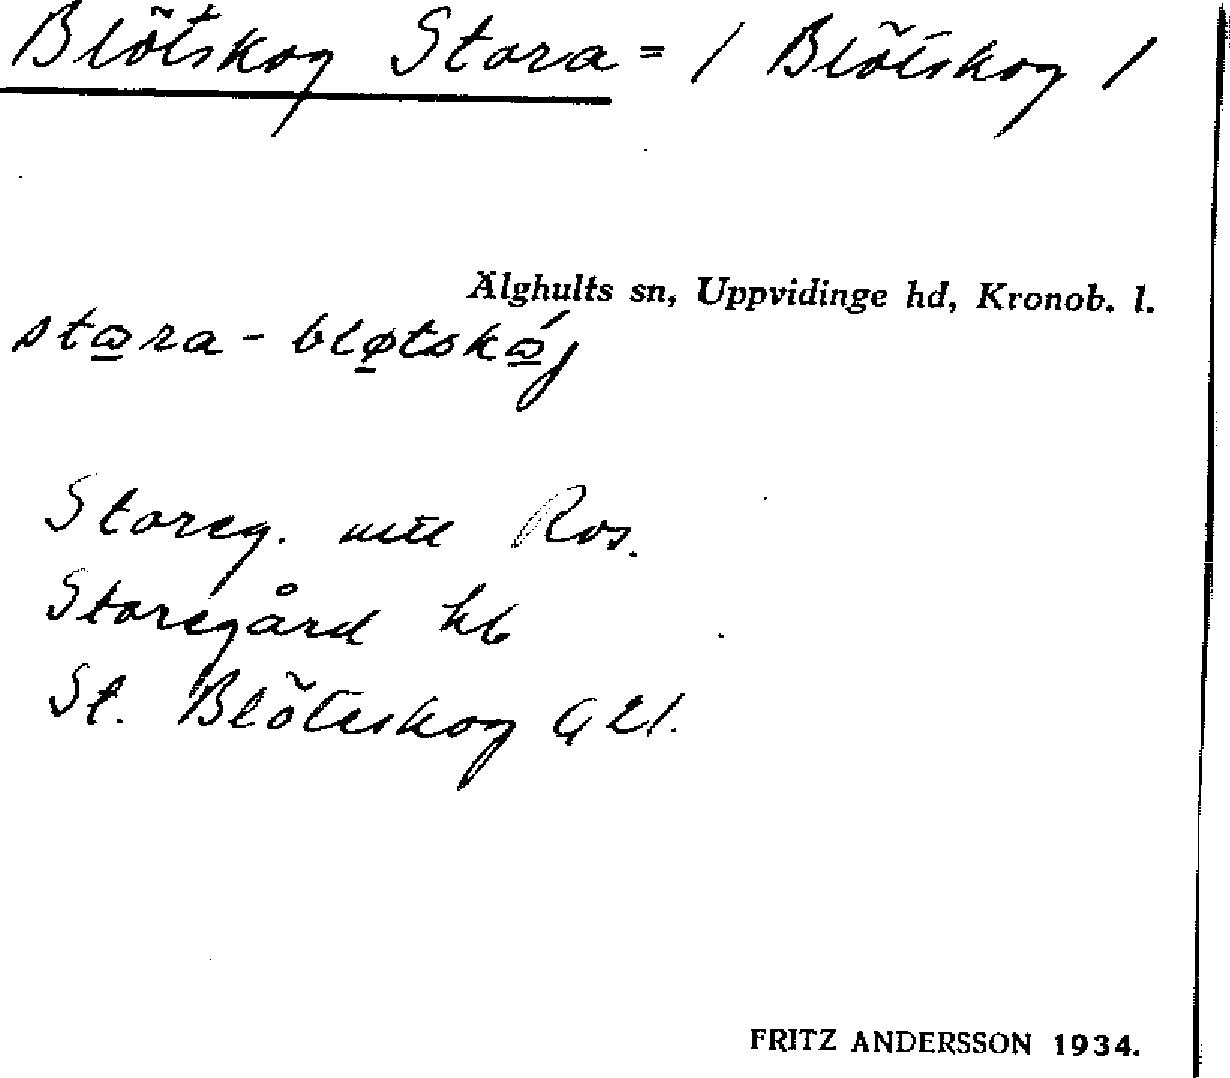 Blötskog Stora = / Blötskog /
Älghults sn, Uppvidinge hd, Kronob. l.
stora - bløtskoj
Storeg. till Ros.
Storegård hb
St. Blötskog
FRITZ ANDERSSON 1934.